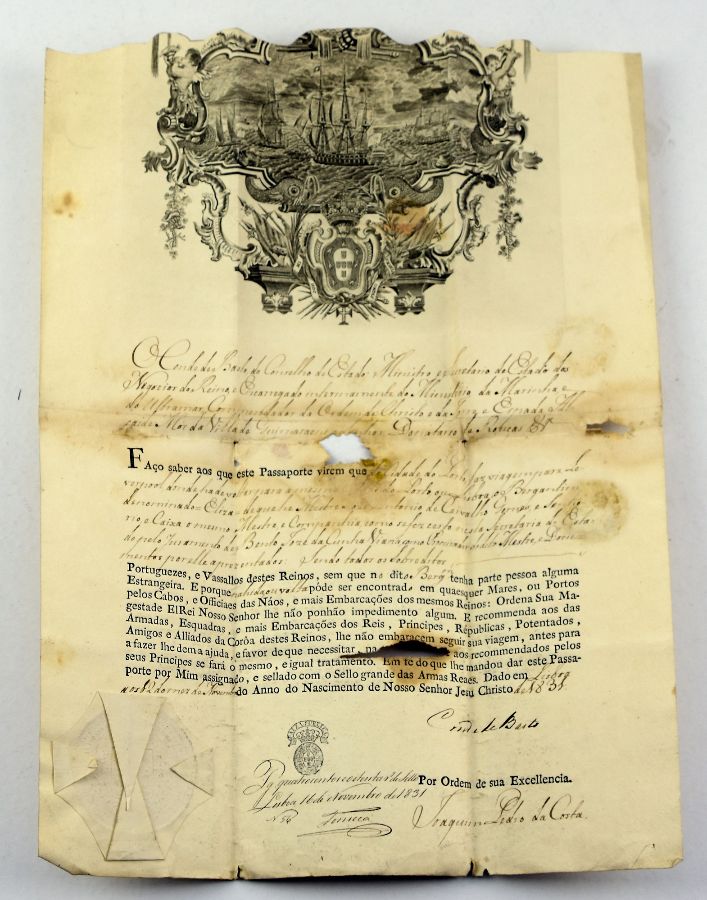 O Conde de Basto do Conselho de Estado, Ministro e Secretario de Estado dos
Negocios do Reino, e Encarregado interinamente do Ministerio da Marinha e
do Ultramar, Commendador da Ordem de Christo e da Torre e Espada, Al
caide Mor da Villa de Guimaraens Donatario de &ª
FAÇO saber aos que este Passaporte virem que Cidade do Porto faz viagem para Le
verpool donde hade voltar para a mesma do Porto o Bergantim
denominado Eliza de que he Mestre Antonio de Carvalho
e Caixa o mesmo Mestre e Companhia como se fez certo nesta Secretaria de Esta
do pelo Juramento de Bento José da Cunha Vianna do dito Mestre, e Docu
mentos por elle aprezentados: Sendo todos os sobreditos
Portuguezes, e Vassallos destes Reinos, sem que no dito Berg.m tenha parte pessoa alguma
Estrangeira. E porque na hida ou volta póde ser encontrado em quaesquer Mares, ou Portos
pelos Cabos, e Officiaes das Náos, e mais Embarcações dos mesmos Reinos: Ordena Sua Ma-
gestade ElRei Nosso Senhor lhe não ponhão impedimento algum. E recommenda aos das
Armadas, Esquadras, e mais Embarcações dos Reis, Principes, Républicas, Potentados,
Amigos e Alliados da Corôa destes Reinos, lhe não embaracem seguir sua viagem, antes para
a fazer lhe dem a ajuda, e favor de que necessitar, na aos recommendados pelos
seus Principes se fará o mesmo, e igual tratamento. Em fé do que lhe mandou dar este Passa-
porte por Mim assignado, e sellado com o Sello grande das Armas Reaes. Dado em Lisboa
aos 12 do mez de Novembro do Anno do Nascimento de Nosso Senhor Jesu Christo de 1831.
Conde de Basto
Pg quatrocentos e oitenta r.s de Sello
Lisboa 16 de Novembro de 1831
Por Ordem de sua Excellencia.
Nº 56
Fonseca
Joaquim Pedro da Costa